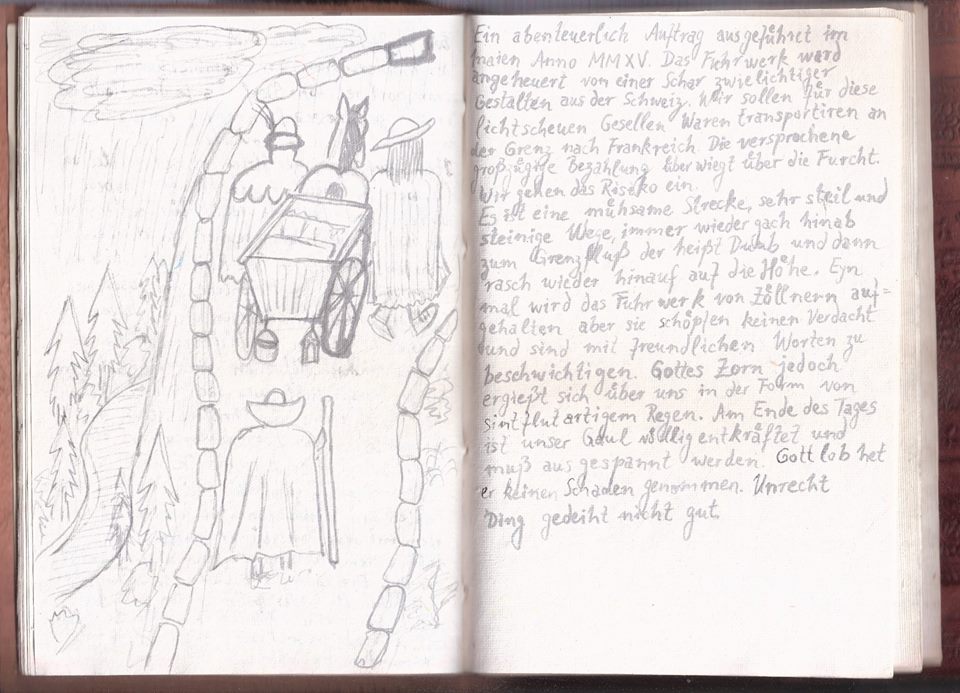 Ein abenteuerlich Auftrag ausgeführet im
maien Anno MMXV. Das Fuhrwerk ward
angeheuert von einer Schar zwielichtiger
Gestalten aus der Schweiz. Wir sollen für diese
lichtscheuen Gesellen Waren transportiren an
der Grenz nach Frankreich. Die versprochene
großzügige Bezahlung überwiegt über die Furcht.
Wir gehen das Risiko ein.
Es ist eine mühsame Strecke, sehr steil und
steinige Wege, immer wieder gach hinab
zum Grenzfluß der heißt Dumb und dann
rasch wieder hinauf auf die Höhe. Eyn
mal wird das Fuhrwerk von Zöllnern auf=
gehalten aber sie schöpfen keinen Verdacht
und sind mit freundlichen Worten zu
beschwichtigen. Gottes Zorn jedoch
ergießt sich über uns in der Form von
sintflutartigem Regen. Am Ende des Tages
ist unser Gaul völlig entkräftet und
muß ausgespannt werden. Gott lob het
er keinen Schaden genommen. Unrecht
Ding gedeiht nicht gut.